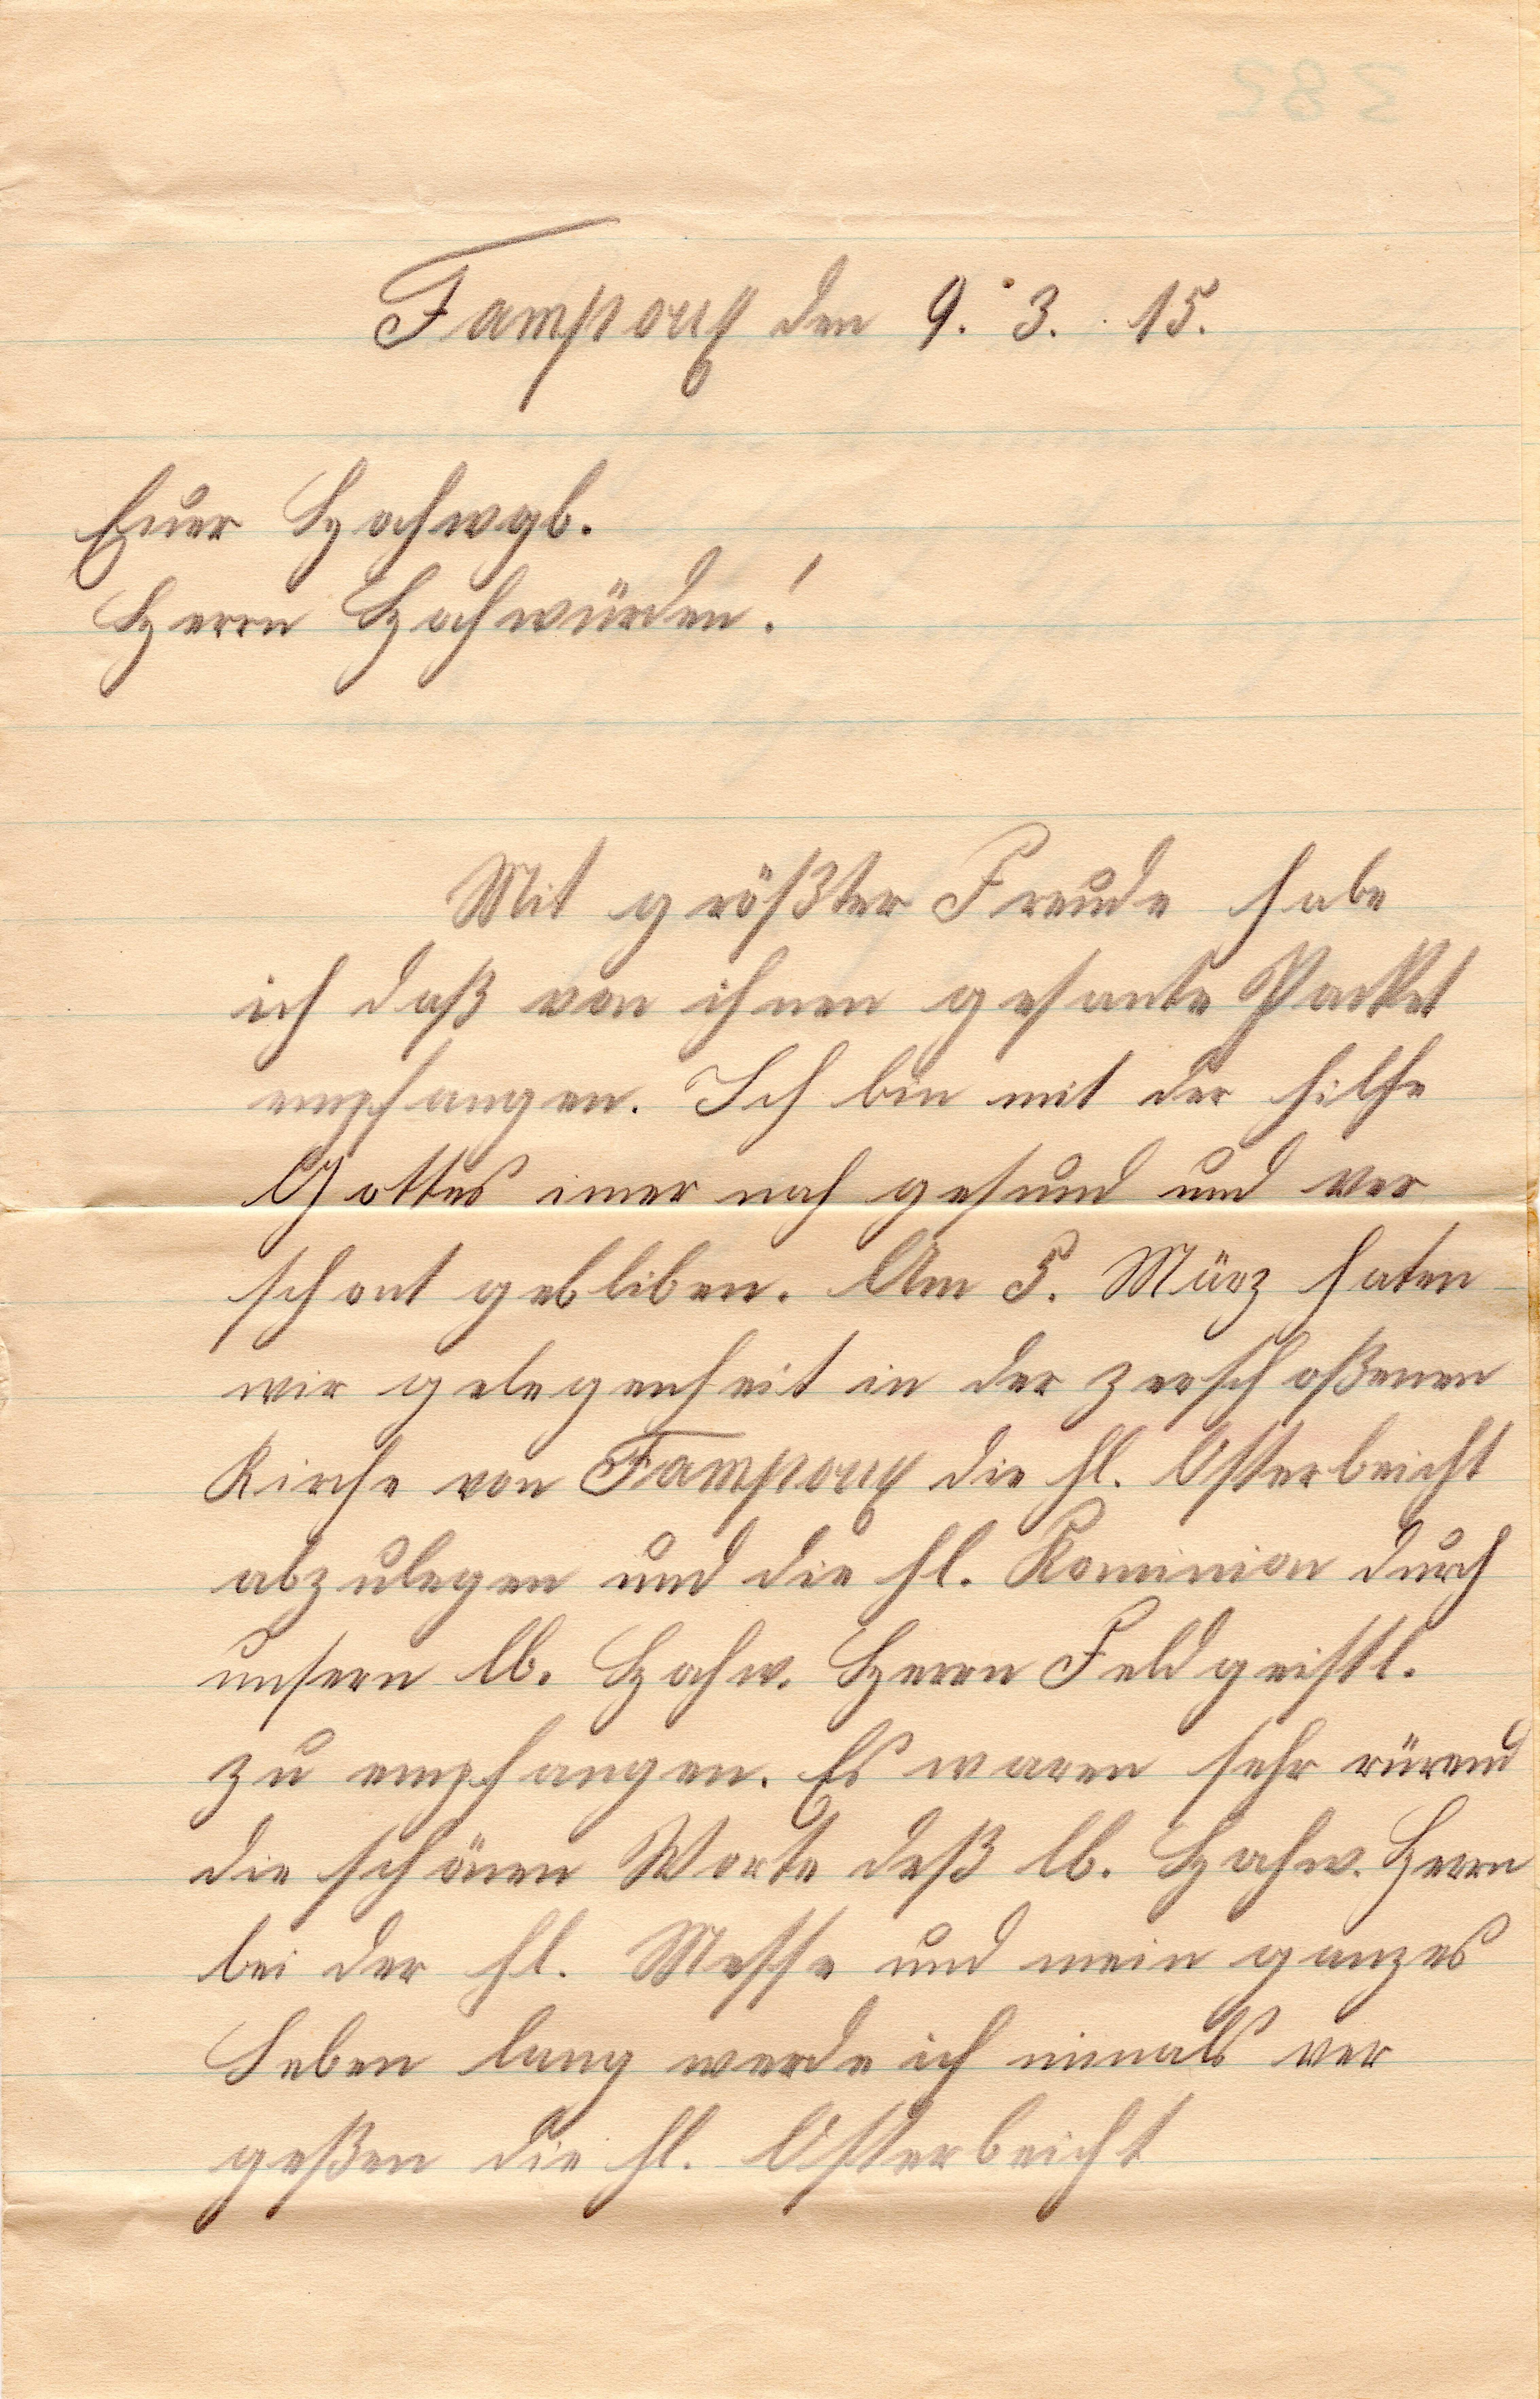 Fampoux den 9. 3. 15.
Euer Hochwgb.
Herrn Hochwürden!
Mit größter Freude habe
ich daß von ihnen gesante Packet
empfangen. Ich bin mit der hilfe
Gottes imer noch gesund und ver
schont gebliben. Am 5. März haten
wir gelegenheit in der zerschoßenen
Kirche von Fampoux die hl. Osterbeicht
abzulegen und die hl. Kominion durch
unsern lb. Hochw. Herrn Feldgeistl.
zu empfangen. Es waren sehr rürend
die schönen Worte deß lb. Hochw. Herrn
bei der hl. Messe und mein ganzes
Leben lang werde ich nimals ver
geßen die hl. Osterbeicht